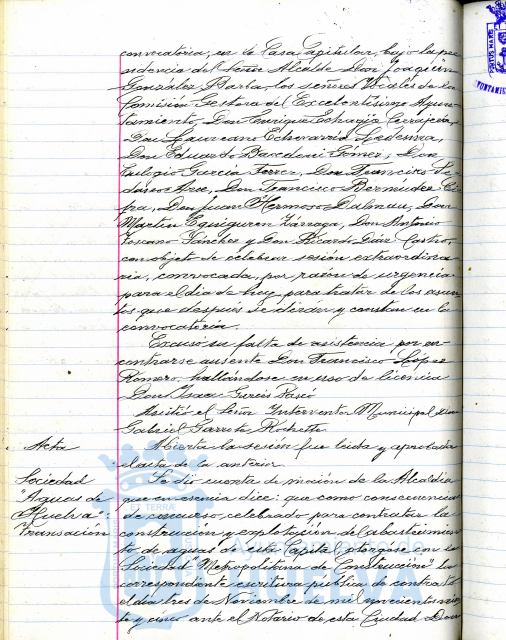 convocatoria, en la Casa Capitular, bajo la pre
sidencia del Señor Alcalde Don Joaquín
González Barba, los señores Vocales de la
Comisión Gestora del Excelentísimo Ayun
tamiento, Don Enrique
Don Laureano Echevarría Ledesma,
Don Eduardo Gómez, Don
Eulogio García Don Francisco
Don Francisco Bermúdez
Don Juan Hermoso Dalmau, Don
Martín Eguiguren Zárraga, Don Antonio
Sánchez y Don Ricardo Castro,
con objeto de celebrar sesión extraordina
ria, convocada, por razón de urgencia
para el día de hoy, para tratar de los asun
tos que después se dirán y constan en la
convocatoria.
Excusó su falta de asistencia por en
contrarse ausente Don Francisco López
Romero, hallándose en uso de licencia
Don Isaac García
Asistió el Señor Interventor Municipal Don
Gabriel Garrido
Acta
Abierta la sesión fue leída y aprobada
el acta de la anterior.
Sociedad
"Aguas de
Huelva":
Transación
Se dio cuenta de moción de la Alcaldía
que en esencia dice: que como consecuencia
de concurso, celebrado para contratar la
construcción y explotación del abastecimien
to de aguas de esta Capital, otorgose en
Sociedad "Metropolitana de Construcción" la
correspondiente escritura pública de contrato
el día tres de Noviembre de mil novecientos
te y cinco ante el Notario de esta Ciudad Don
ET TERRAE
Ayuntamiento de
HUELVA
PORTUS MARIS